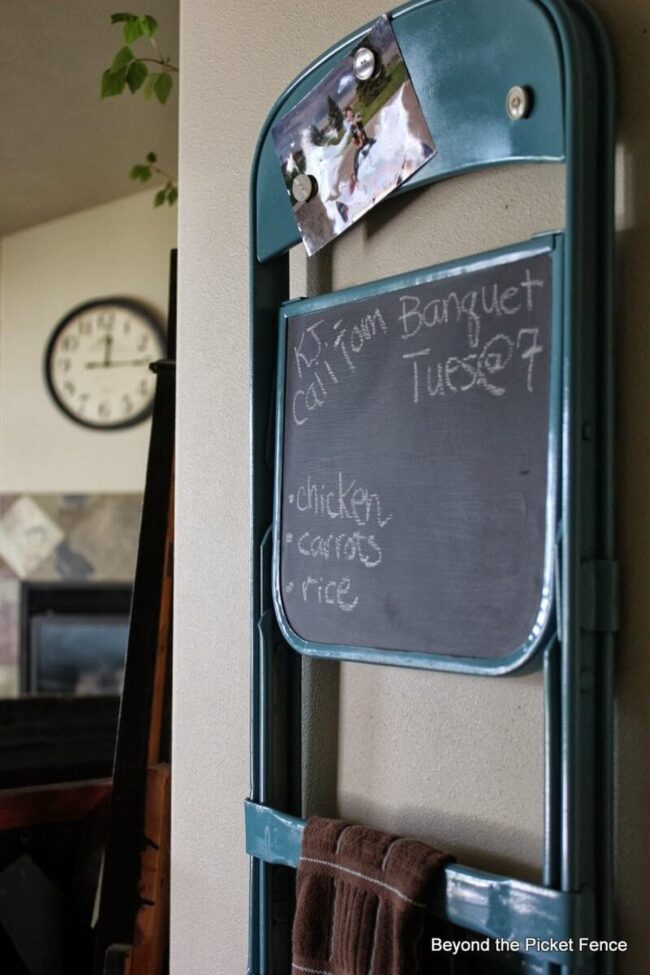 KJ.
call Tom
Banquet
Tues@7
• chicken
• carrots
• rice
Beyond the Picket Fence